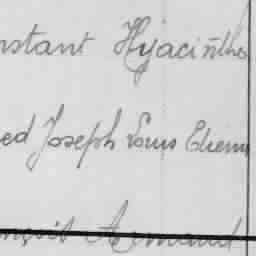 nstant Hyacinthe
ed Joseph Louis Etienn
Armand